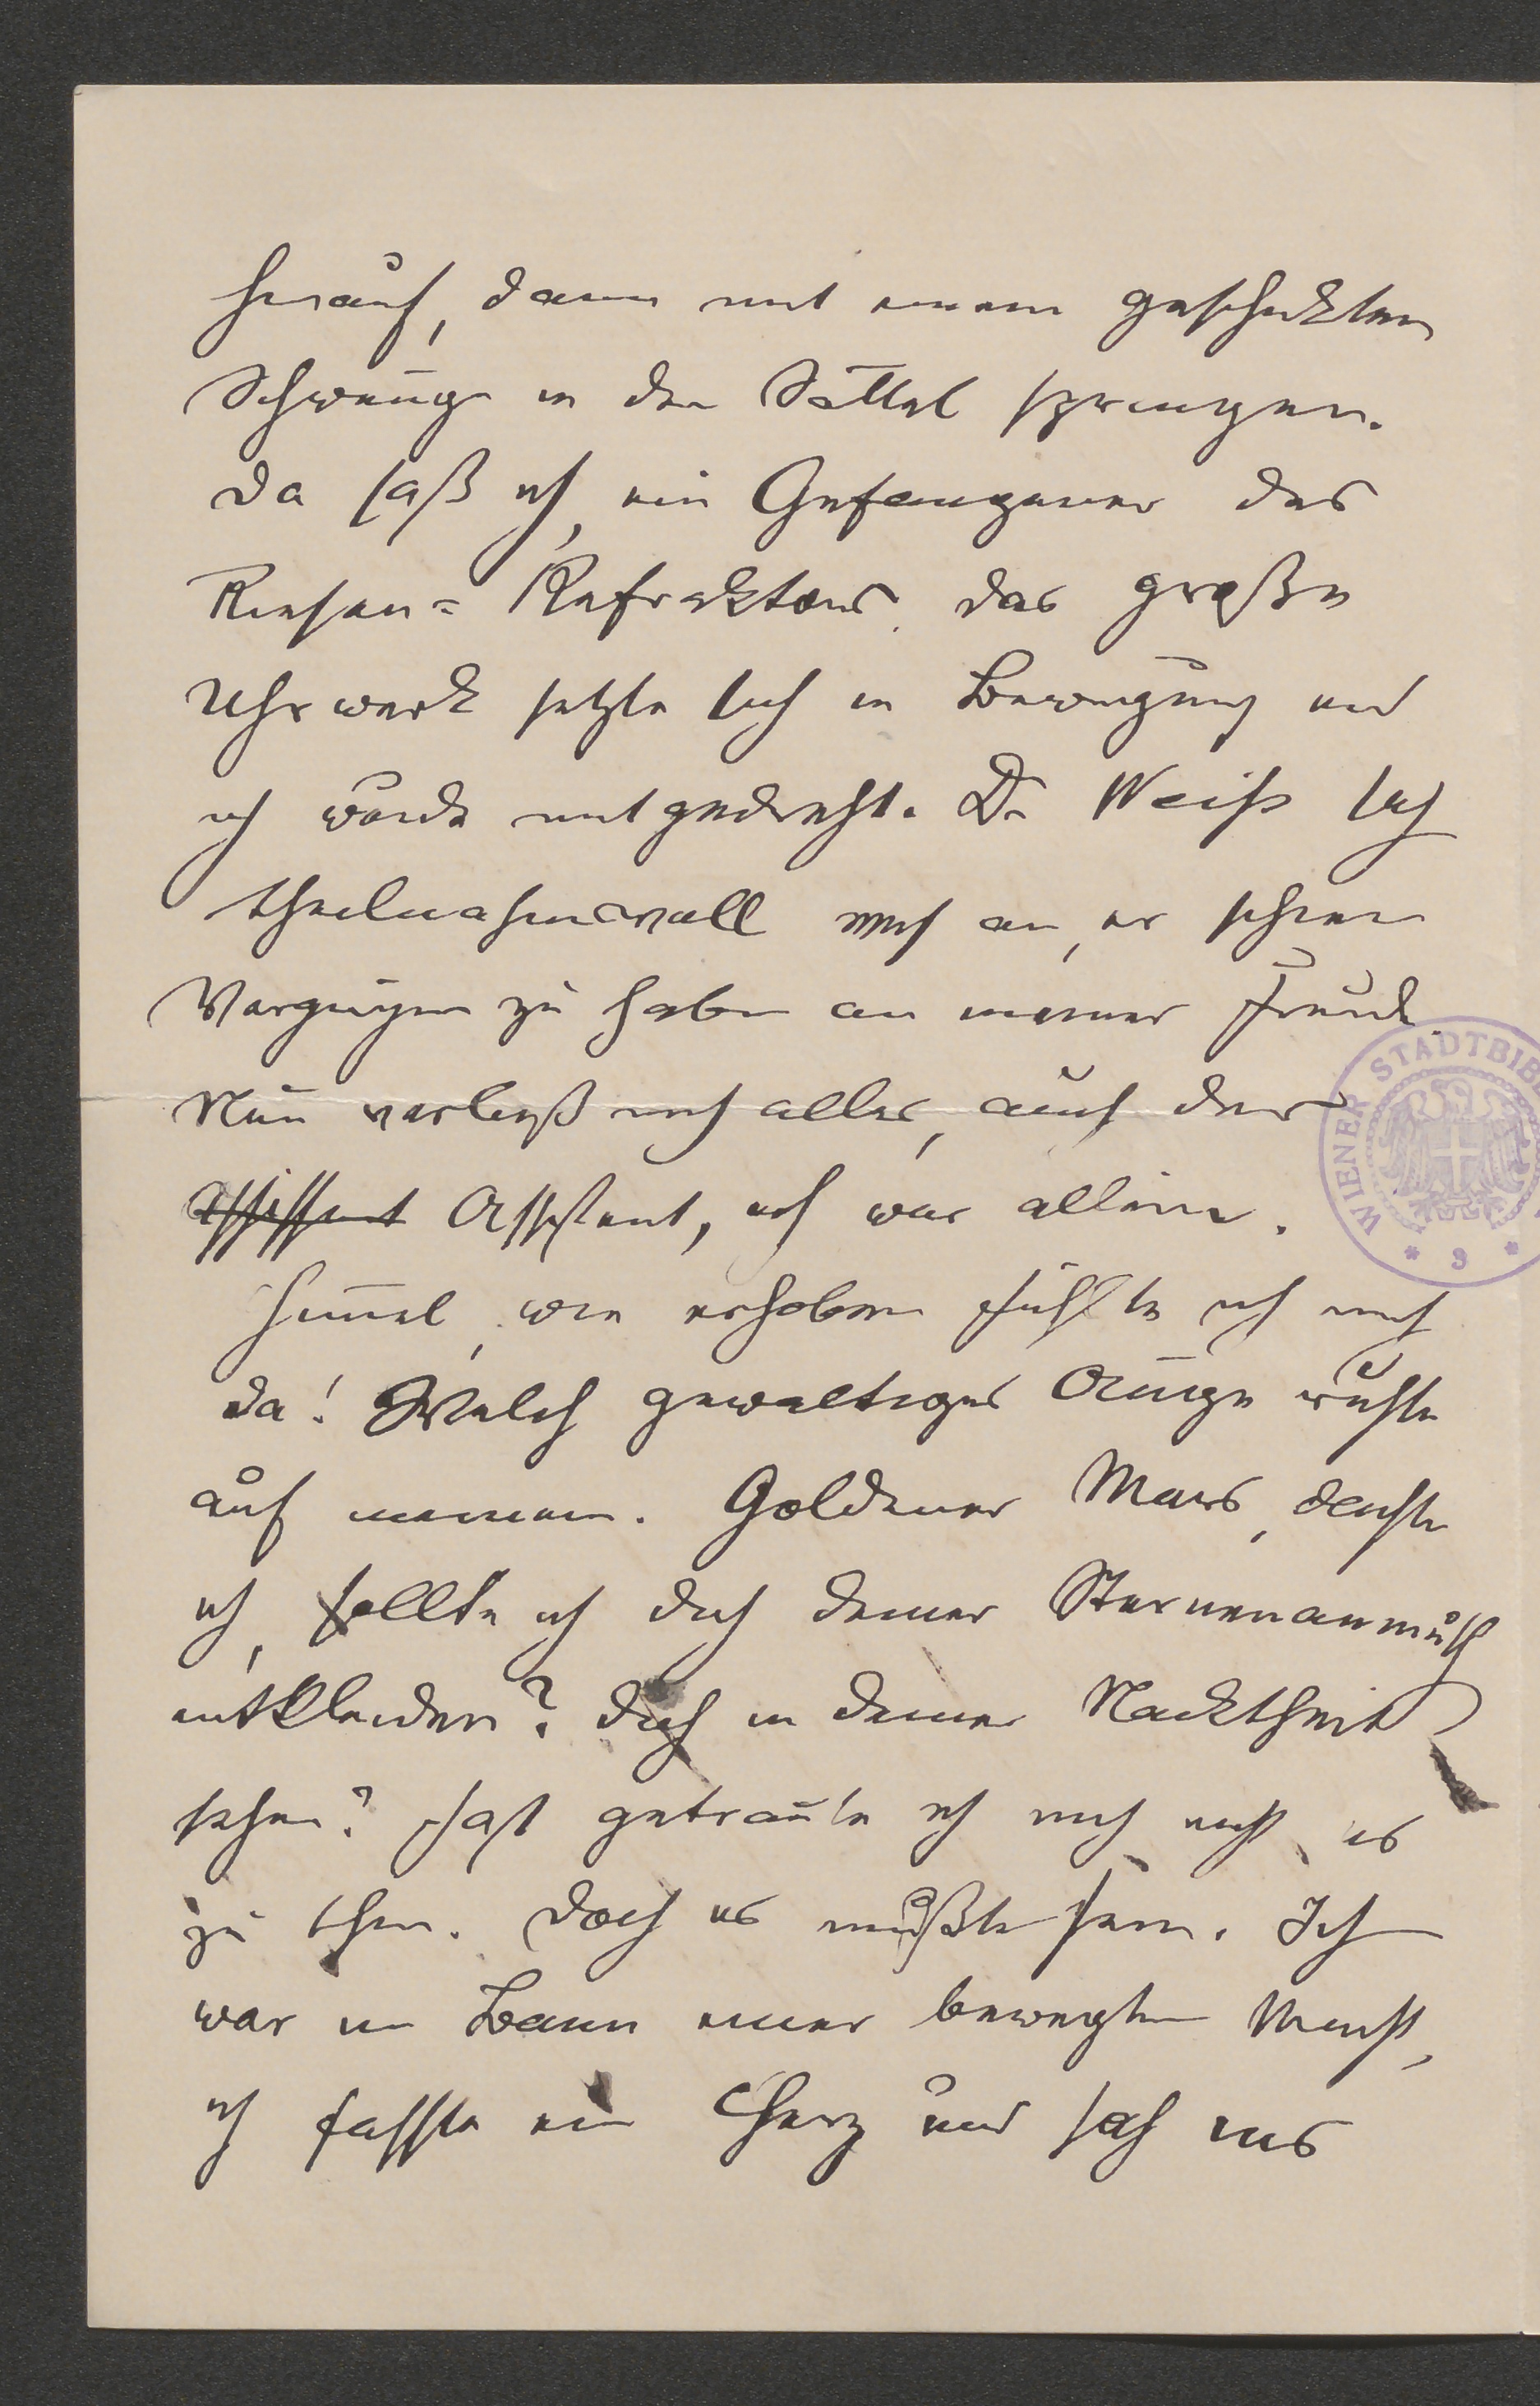 herauf, dann mit einem geschickten
Schwunge in den Sattel springen.
Da saß ich, ein Gefangener des
Riesen-Refraktors. Das große
Uhrwerk setzte sich in Bewegung und
ich wurde mitgedreht. Dr Weiss sah
theilnahmsvoll mich an, er schien
Vergnügen zu haben an meiner Freude.
Nun verließ mich alles, auch der
Assistent Assistent, ich war allein.
Himmel, wie erhoben fühlte ich mich
da! Welch gewaltiges Auge ruhte
auf meinem. Goldener Mars, dachte
ich, sollte ich dich deiner Sternenanmuth
entkleiden? dich in deiner Nacktheit
sehen? Fast getraute ich mich nicht, es
zu thun. Doch es mußte sein. Ich
war im Bann einer bewegten Macht,
ich fasste ein Herz und sah ins
WIENER STADTBIB
* 9 *